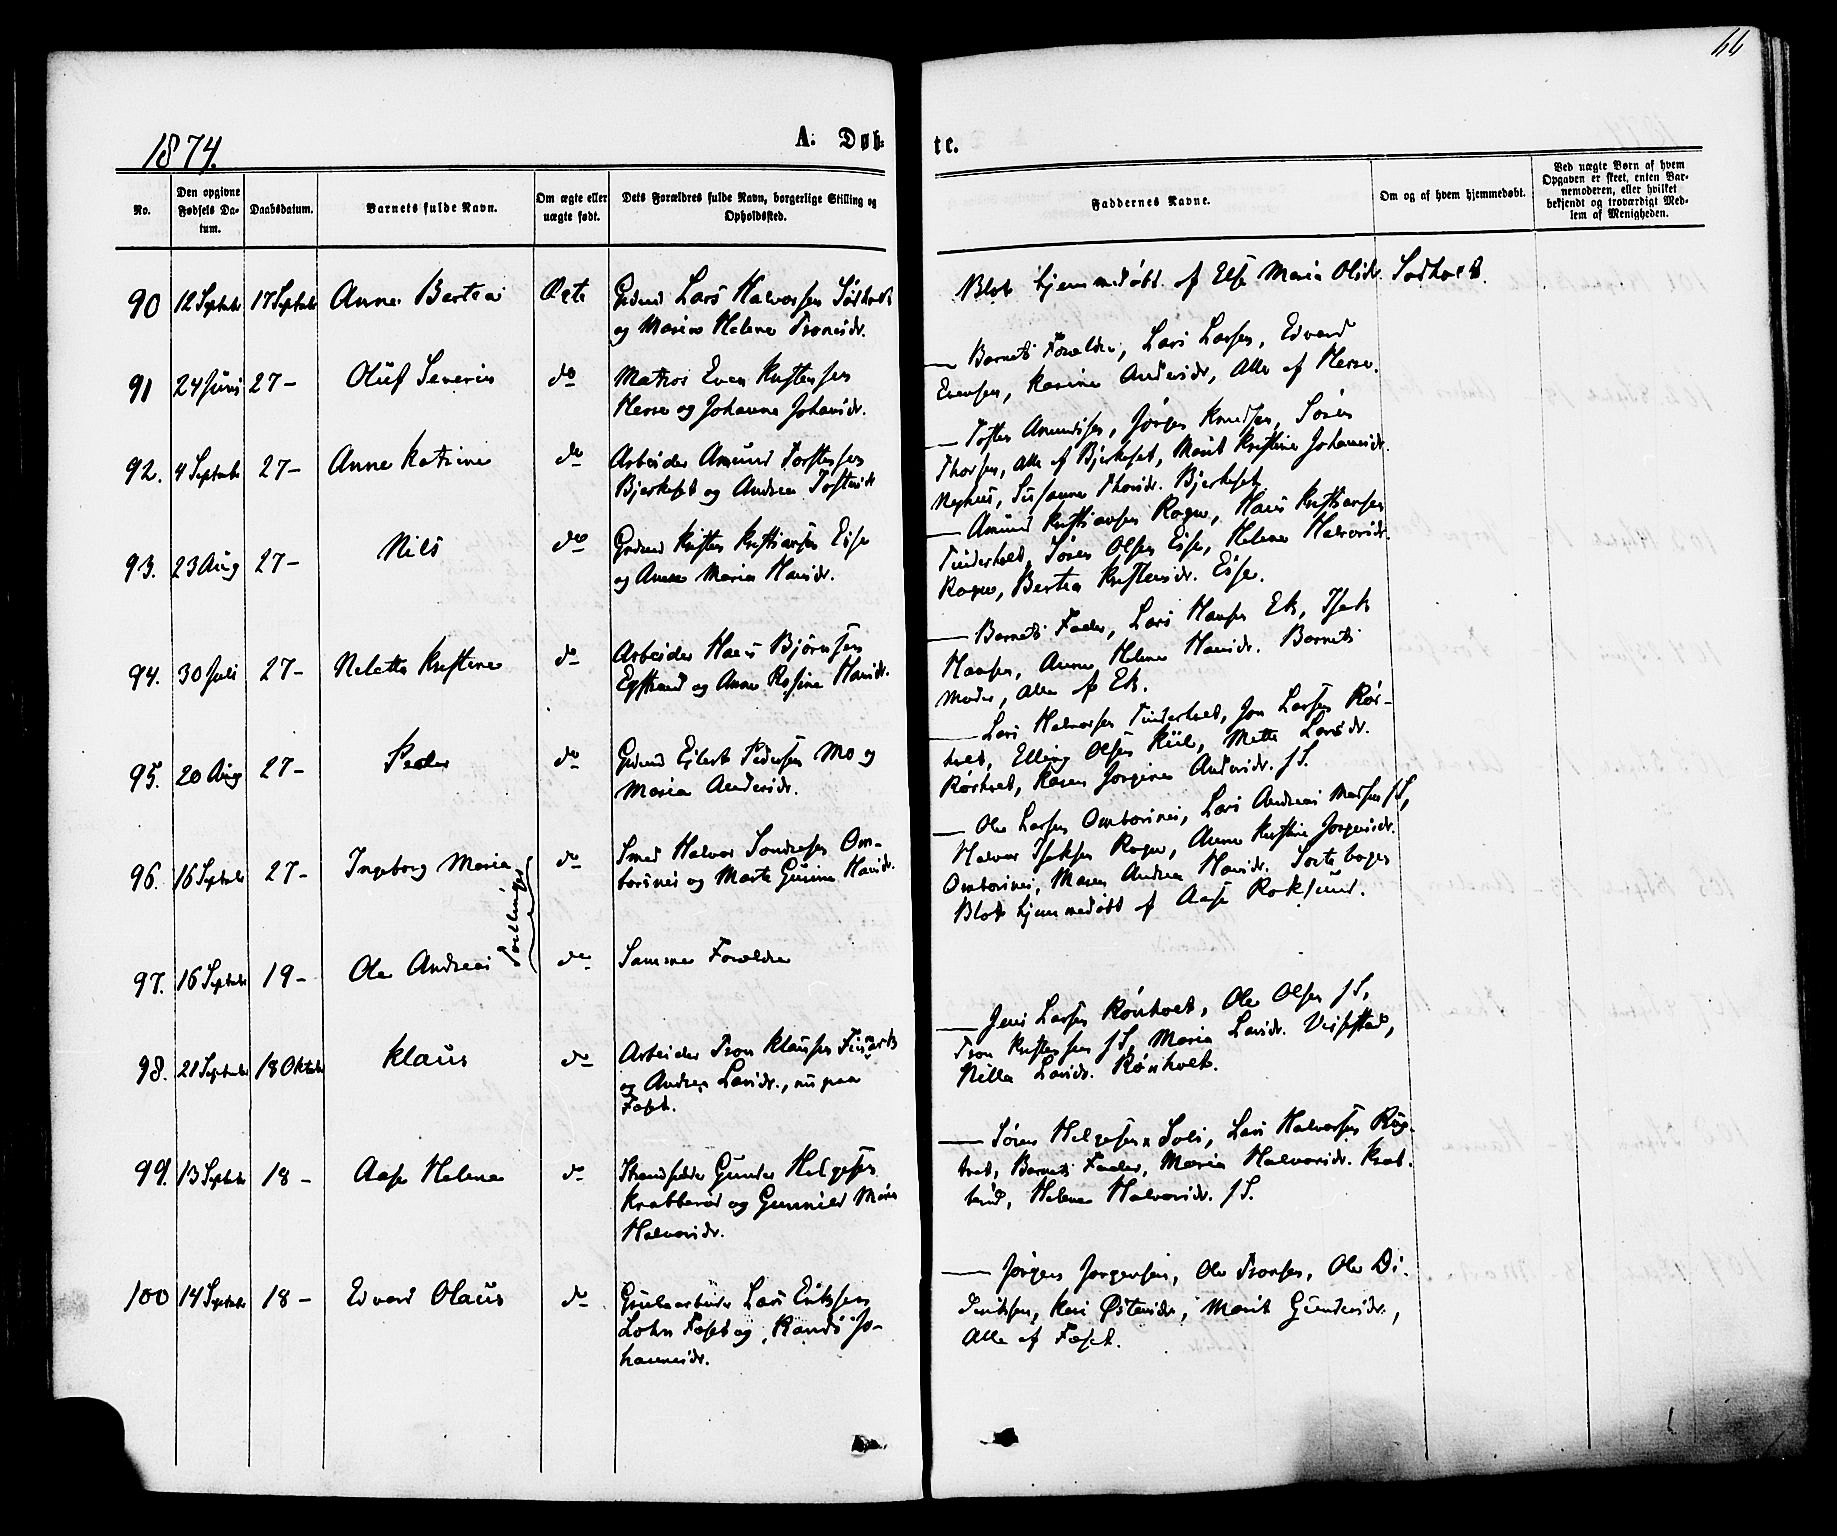 66
1874.
A. Døb-
te.
No.
Den opgivne Fødsels Da-
tum.
Daabsdatum.
Barnets fulde Navn.
Om ægte eller uægte født.
Dets Forældres fulde Navn, borgerlige Stilling og Opholdssted.
Faddernes Navne.
Om og af hvem hjemmedøbt.
Ved uægte Børn af hvem
Opgaven er skeet, enten Bar-
nemoderen, eller hvilket
bekjendt og troværdigt Med-
lem af Menigheden.
90 12 Septembr 17 Septembr Anne Bertea Ægte Grdmd Lars Halvorsen
og Maren Helene Tronesdr.
Blot hjemmedøbt af Else Maria Olsdr.
91 24 Juni 27 - Oluf Severin do Matros Even Kristensen
Herre og Johanne Johansdr.
— Barnets Forældre, Lars Larsen, Edvard
Evensen, Karine Andersdr, Alle af Herre.
92. 4 Septembr 27 - Anne Katrine do Arbeider Amund Torstensen
Bjerkeset og Andrea
— Amundsen, Jørgen Knudsen, Søren
Thorsen, alle af Bjerkeset, Marit Kristine Johannesdr.
Susanne Thorsdr. Bjerkeset.
93. 23 Aug 27 - Nils do Grdmd Kristen Kristiansen
og Anne Maria Hansdr.
— Amund Kristiansen Rogn, Hans Kristiansen
Tinderholt, Søren Olsen Helene Halvorsdr.
Rogn, Bertea Kristensdr.
94. 30 Juli 27 - Neletta Kristine do Arbeider Hans Bjørnsen
Egstrand og Anne Rosine Hansdr.
— Barnets Fader, Lars Hansen Ek, Isak
Hansen, Anne Helene Hansdr. Barnets
Moder, alle af Ek.
95. 20 Aug 27 - Peder do Grdmd Eilert Pedersen Mo og
Maria Andersdr.
— Lars Halvorsen Tinderholt, Jon Larsen Rør-
holt, Elling Olsen Kiil, Mette Larsdr.
Rørholt, Karen Jorgine Andersdr. f S.
96. 16 Septembr 27 - Ingeborg Maria do Smed Halvor Sondresen Om-
borsnes og Marte Gurine Hansdr.
— Ole Larsen Omborsnes, Lars Andreas Madsen f S,
Halvor Isaksen Rogn, Anne Kirstine Jørgensdr.
Omborsnes, Maren Andrea Hansdr. Sortebogen
Blot hjemmedøbt af Aase Roksund.
Tvillinger
97. 16 Septembr 19 - Ole Andreas do Samme Forældre
98. 21 Septembr 18 Oktobr Klaus do Arbeider Tron Klausen Finmark
og Andrea Larsdr., nu paa
Foset.
— Jens Larsen Rønholt, Ole Olsen f S,
Tron Kristensen f S, Maria Larsdr.
Nilla Larsdr. Rønholt.
99. 13 Septembr 18 - Aase Helene do Strandsidder Gunder Helgesen
Krabberød og Gunnild Marie
Halvorsdr.
— Søren Helgesen Soli, Lars Halvorsen Rug-
tvet, Barnets Fader, Maria Halvorsdr. Krab-
berød, Helene Halvorsdr. f S.
100 14 Septembr 18 - Edvard Olaus do Grubearbeider Lars Eriksen
Lohn Foset og Randi Jo-
hannesdr.
— Jørgen Jørgensen, Ole Tronsen, Ole Di-
deriksen, Kari Østensdr, Marit Gundersdr.,
Alle af Foset.